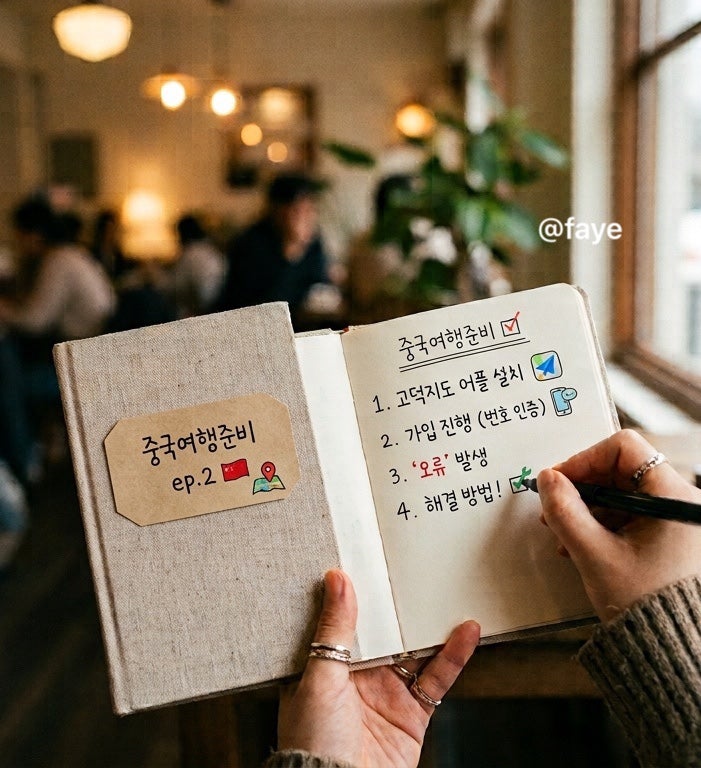 중국여행준비
ep.2
중국여행준비
1. 고덕지도 어플 설치
2. 가입 진행 (번호 인증)
3. '오류' 발생
4. 해결 방법!
@faye